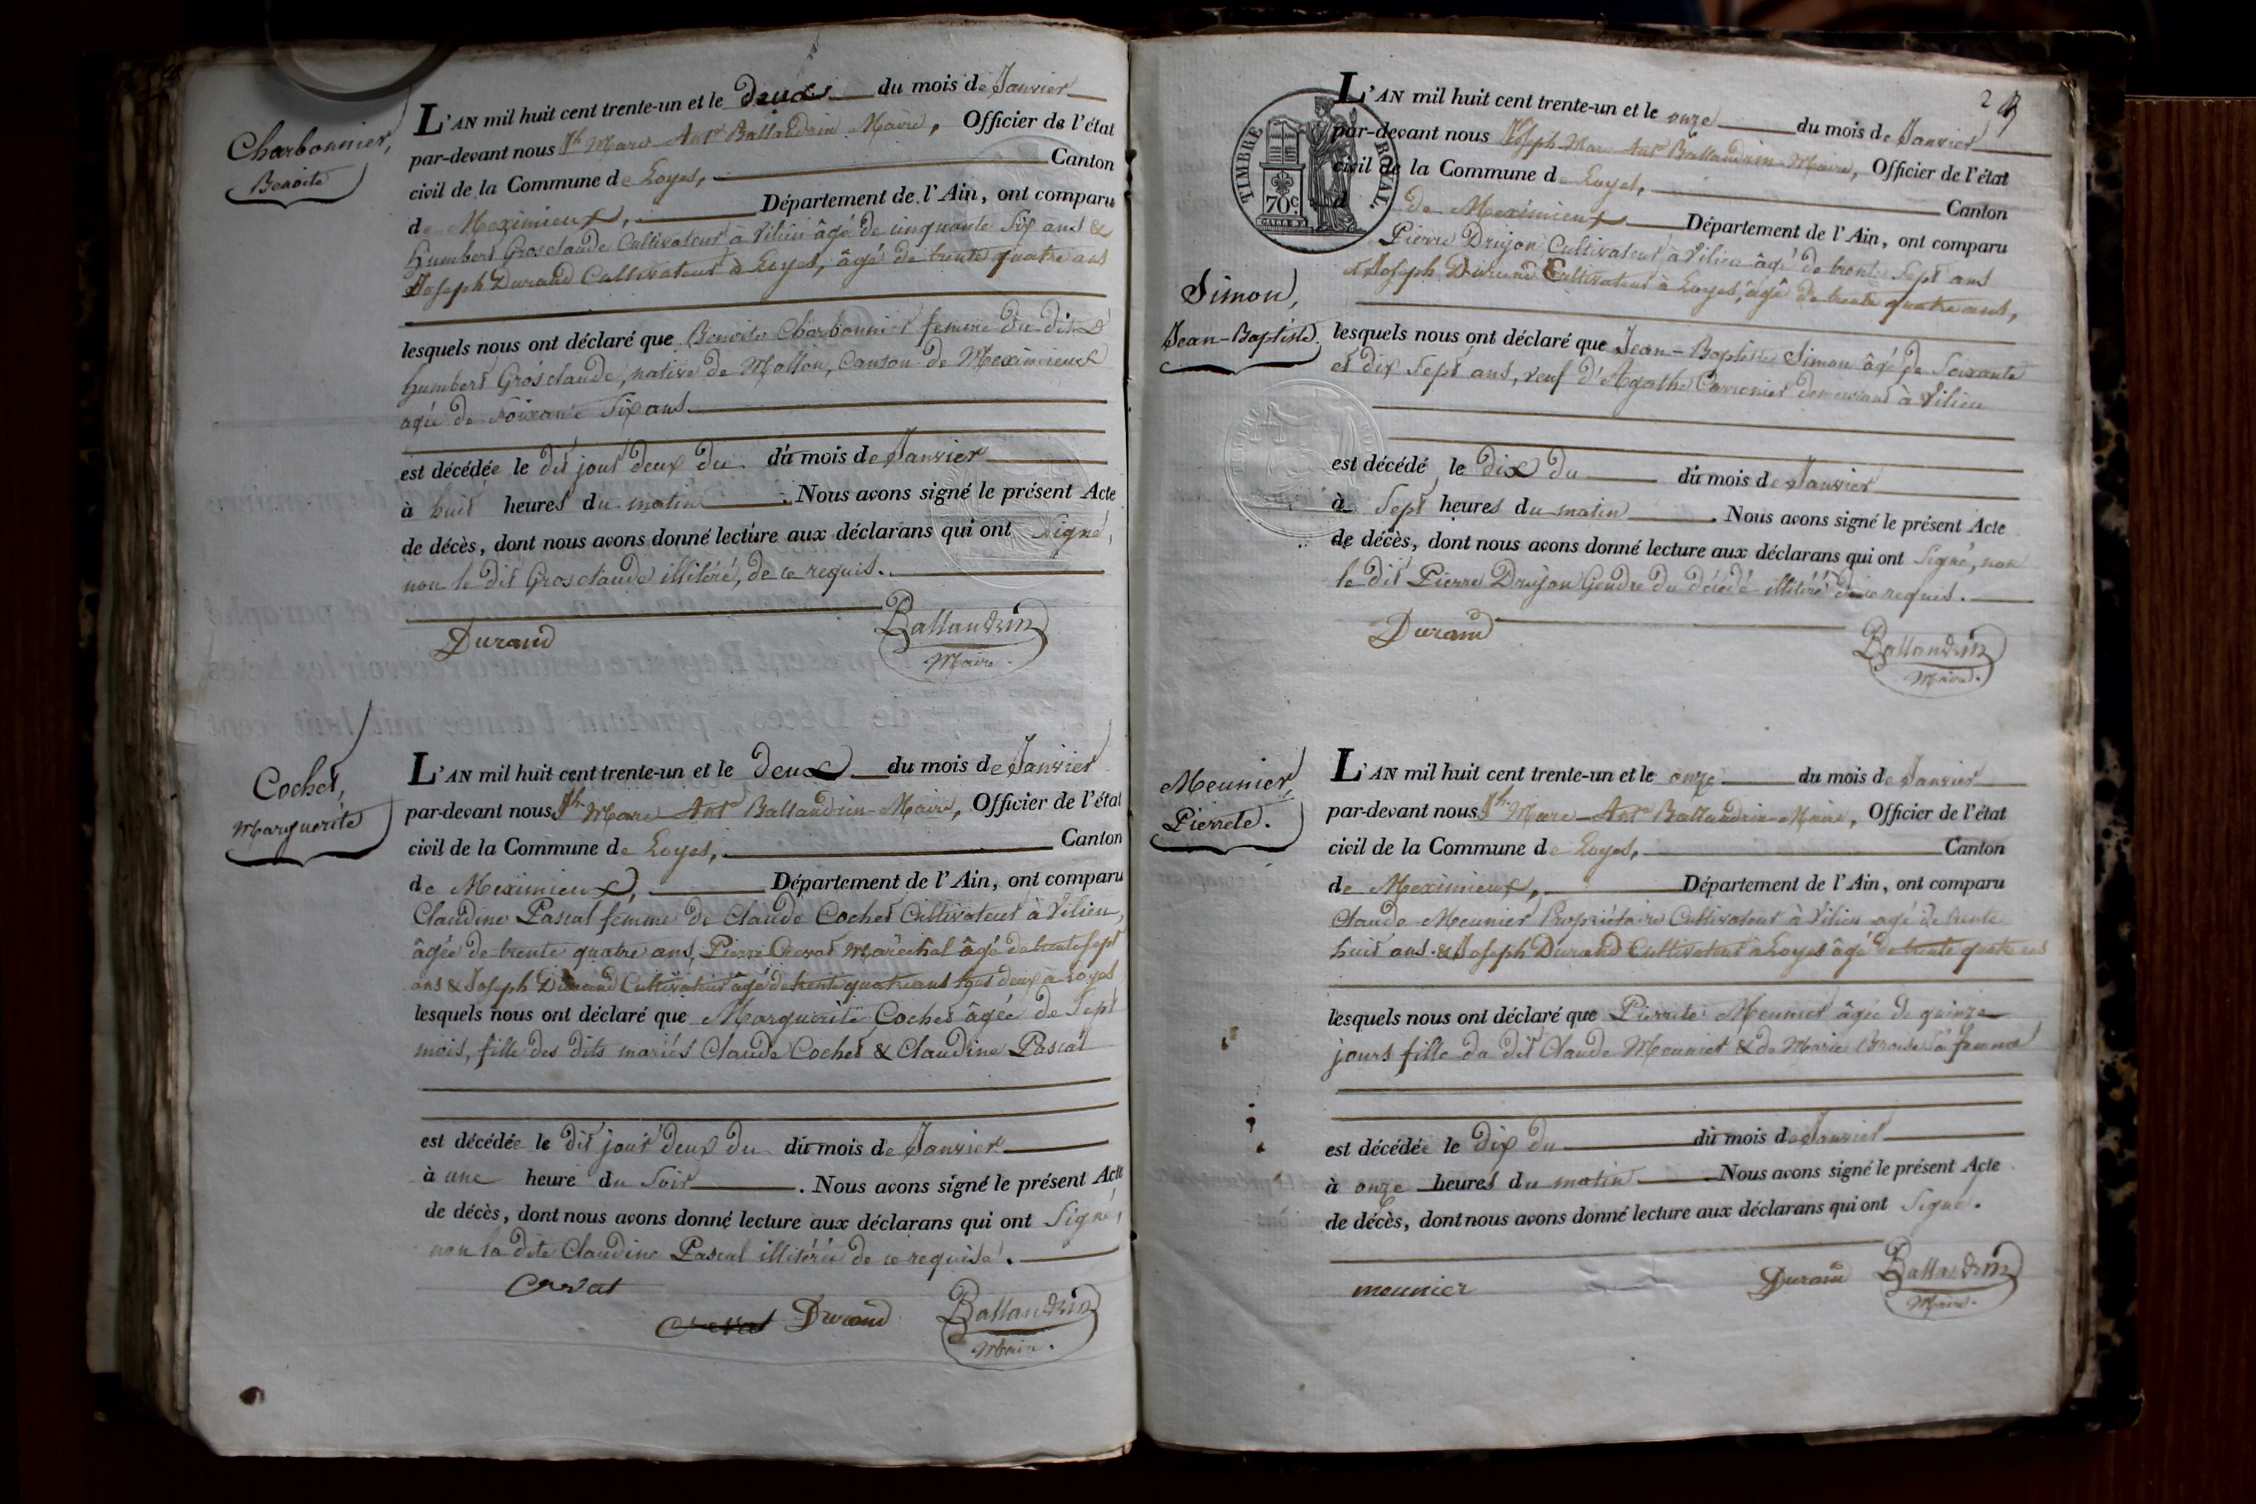 Charbonnier,
Benoite
L'AN mil huit cent trente-un et le deux du mois de Janvier
par-devant nous Jh Marc Ant.e Ballandrin Maire, Officier de l'état
civil de la Commune de Loyes, Canton
de Meximieux, Département de l'Ain, ont comparu
humbert Grosclaude Cultivateur à Vilieu âgé de cinquante six ans &
Joseph Durand Cultivateur à Loyes, âgé de trente quatre ans
lesquels nous ont déclaré que Benoite Charbonnier femme du dit
humbert Grosclaude, native de Mollon, Canton de Meximieux
agée de soixante six ans
est décédée le dit jour deux du du mois de Janvier
à huit heures du matin. Nous avons signé le présent Acte
de décès, dont nous avons donné lecture aux déclarans qui ont signé,
non le dit Grosclaude illitéré, de ce requis.
Durand Ballandrin
Maire.
Cochet,
Marguerite
L'AN mil huit cent trente-un et le deux du mois de Janvier
par-devant nous Jh Marc Ant.e Ballandrin Maire, Officier de l'état
civil de la Commune de Loyes, Canton
de Meximieux, Département de l'Ain, ont comparu
Claudine Pascal femme de Claude Cochet Cultivateur à Vilieu,
âgée de trente quatre ans, Pierre Maréchal âgé de trente sept
ans & Joseph Durand Cultivateur âgé de trente quatre ans tous deux à Loyes
lesquels nous ont déclaré que Marguerite Cochet âgée de sept
mois, fille des dits mariés Claude Cochet & Claudine Pascal
est décédée le dit jour deux du du mois de Janvier
à une heure du soir. Nous avons signé le présent Acte
de décès, dont nous avons donné lecture aux déclarans qui ont signé,
non la dite Claudine Pascal illitérée de ce requise.
Durand Ballandrin
Maire.
2
TIMBRE ROYAL
70c
L'AN mil huit cent trente-un et le onze du mois de Janvier
par-devant nous Joseph Marc Ant.e Ballandrin Maire, Officier de l'état
civil de la Commune de Loyes, Canton
de Meximieux Département de l'Ain, ont comparu
Pierre Drujon Cultivateur à Vilieu âgé de trente sept ans
et Joseph Durand Cultivateur à Loyes, âgé de trente quatre ans,
Simon,
Jean-Baptiste.
lesquels nous ont déclaré que Jean-Baptiste Simon âgé de soixante
et dix sept ans, veuf d'Agathe demeurant à Vilieu
est décédé le dix du du mois de Janvier
à sept heures du matin. Nous avons signé le présent Acte
de décès, dont nous avons donné lecture aux déclarans qui ont signé, non
le dit Pierre Drujon Gendre du décédé illitéré de ce requis.
Durand Ballandrin
Maire.
Meunier,
Pierrete.
L'AN mil huit cent trente-un et le onze du mois de Janvier
par-devant nous Jh Marc Ant.e Ballandrin Maire, Officier de l'état
civil de la Commune de Loyes, Canton
de Meximieux, Département de l'Ain, ont comparu
Claude Meunier Propriétaire Cultivateur à Vilieu agé de trente
huit ans & Joseph Durand Cultivateur à Loyes âgé de trente quatre ans
lesquels nous ont déclaré que Pierrete Meunier âgée de quinze
jours fille du dit Claude Meunier & de Marie sa femme
est décédée le dix du du mois de Janvier
à onze heures du matin Nous avons signé le présent Acte
de décès, dont nous avons donné lecture aux déclarans qui ont signé.
meunier Durand Ballandrin
Maire.